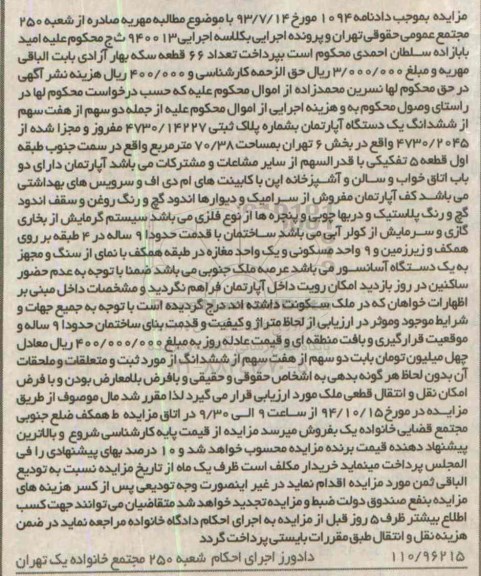 مزایده بموجب دادنامه ۱۰۹۴ مورخ ۹۳/۷/۱۴ با موضوع مطالبه مهریه صادره از شعبه ۲۵۰
مجتمع عمومی حقوقی تهران و پرونده اجرایی بکلاسه اجرایی ۹۴۰۰۱۳ ث ج محکوم علیه امید
بابازاده سلطان احمدی محکوم است بپرداخت تعداد ۶۶ قطعه سکه بهار آزادی بابت الباقی
مهریه و مبلغ ۳/۰۰۰/۰۰۰ ریال حق الزحمه کارشناسی و ۴۰۰/۰۰۰ ریال هزینه نشر آگهی
در حق محکوم لها نسرین محمدزاده از اموال محکوم علیه که حسب درخواست محکوم لها در
راستای وصول محکوم به و هزینه اجرایی از اموال محکوم علیه از جمله دو سهم از هفت سهم
از ششدانگ یک دستگاه آپارتمان بشماره پلاک ثبتی ۴۷۳۰/۱۴۲۲۷ مفروز و مجزا شده از
۴۷۳۰/۲۰۴۵ واقع در بخش ۶ تهران بمساحت ۷۰/۳۸ مترمربع واقع در سمت جنوب طبقه
اول قطعه ۵ تفکیکی با قدرالسهم از سایر مشاعات و مشترکات می باشد آپارتمان دارای دو
باب اتاق خواب و سالن و آشپزخانه اپن با کابینت های ام دی اف و سرویس های بهداشتی
می باشد کف آپارتمان مفروش از سرامیک و دیوارها اندود گچ و رنگ روغن و سقف اندود
گچ و رنگ پلاستیک و دربها چوبی و پنجره ها از نوع فلزی می باشد سیستم گرمایش از بخاری
گازی و سرمایش از کولر آبی می باشد ساختمان با قدمت حدودا ۹ ساله در ۴ طبقه بر روی
همکف و زیرزمین و ۹ واحد مسکونی و یک واحد مغازه در طبقه همکف با نمای از سنگ و مجهز
به یک دستگاه آسانسور می باشد عرصه ملک جنوبی می باشد ضمنا با توجه به عدم حضور
ساکنین در روز بازدید امکان رویت داخل آپارتمان فراهم نگردید و مشخصات داخل مبنی بر
اظهارات خواهان که در ملک سکونت داشته اند درج گردیده است با توجه به جمیع جهات و
شرایط موجود وموثر در ارزیابی از لحاظ متراژ و کیفیت و قدمت بنای ساختمان حدودا ۹ ساله و
موقعیت قرارگیری و بافت منطقه ای و قیمت عادله روز به مبلغ ۴۰۰/۰۰۰/۰۰۰ ریال معادل
چهل میلیون تومان بابت دو سهم از هفت سهم از ششدانگ از مورد ثبت و متعلقات و ملحقات
آن بدون لحاظ هر گونه بدهی به اشخاص حقوقی و حقیقی و بافرض بلامعارض بودن و با فرض
امکان نقل و انتقال قطعی ملک مورد ارزیابی قرار می گیرد لذا مقرر شد مال موصوف از طریق
مزایده در مورخ ۹۴/۱۰/۱۵ از ساعت ۹ الی ۹/۳۰ در اتاق مزایده ط همکف ضلع جنوبی
مجتمع قضایی خانواده یک بفروش میرسد مزایده از قیمت پایه کارشناسی شروع و بالاترین
پیشنهاد دهنده قیمت برنده مزایده محسوب خواهد شد و ۱۰ درصد بهای پیشنهادی را فی
المجلس پرداخت مینماید خریدار مکلف است ظرف یک ماه از تاریخ مزایده نسبت به تودیع
الباقی ثمن مورد مزایده اقدام نماید در غیر اینصورت وجه تودیعی پس از کسر هزینه های
مزایده بنفع صندوق دولت ضبط و مزایده تجدید خواهد شد متقاضیان می توانند جهت کسب
اطلاع بیشتر ظرف ۵ روز قبل از مزایده به اجرای احکام دادگاه خانواده مراجعه نماید در ضمن
هزینه نقل و انتقال طبق مقررات بایستی پرداخت گردد
۱۱۰/۹۶۲۱۵ دادورز اجرای احکام شعبه ۲۵۰ مجتمع خانواده یک تهران